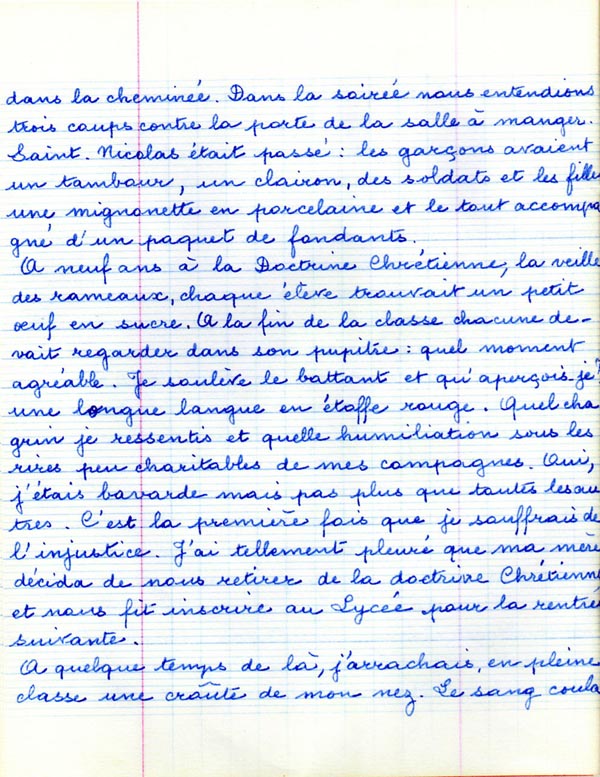 dans la cheminée. Dans la soirée nous entendions
trois coups contre la porte de la salle à manger.
Saint. Nicolas était passé : les garçons avaient
un tambour, un clairon, des soldats et les filles
une mignonette en porcelaine et le tout accompa
gné d'un paquet de fondants.
A neuf ans à la Doctrine Chrétienne, la veille
des rameaux, chaque élève trouvait un petit
oeuf en sucre. A la fin de la classe chacune de-
vait regarder dans son pupitre : quel moment
agréable. Je soulève le battant et qu'aperçois-je?
une longue langue en étoffe rouge. Quel cha
grin je ressentis et quelle humiliation sous les
rires peu charitables de mes compagnes. Oui,
j'étais bavarde mais pas plus que toutes les au
tres. C'est la première fois que je souffrais de
l'injustice. J'ai tellement pleuré que ma mère
décida de nous retirer de la doctrine Chrétienne
et nous fit inscrire au Lycée pour la rentrée
suivante.
A quelque temps de là, j'arrachais, en pleine
classe une croûte de mon nez. Le sang coula